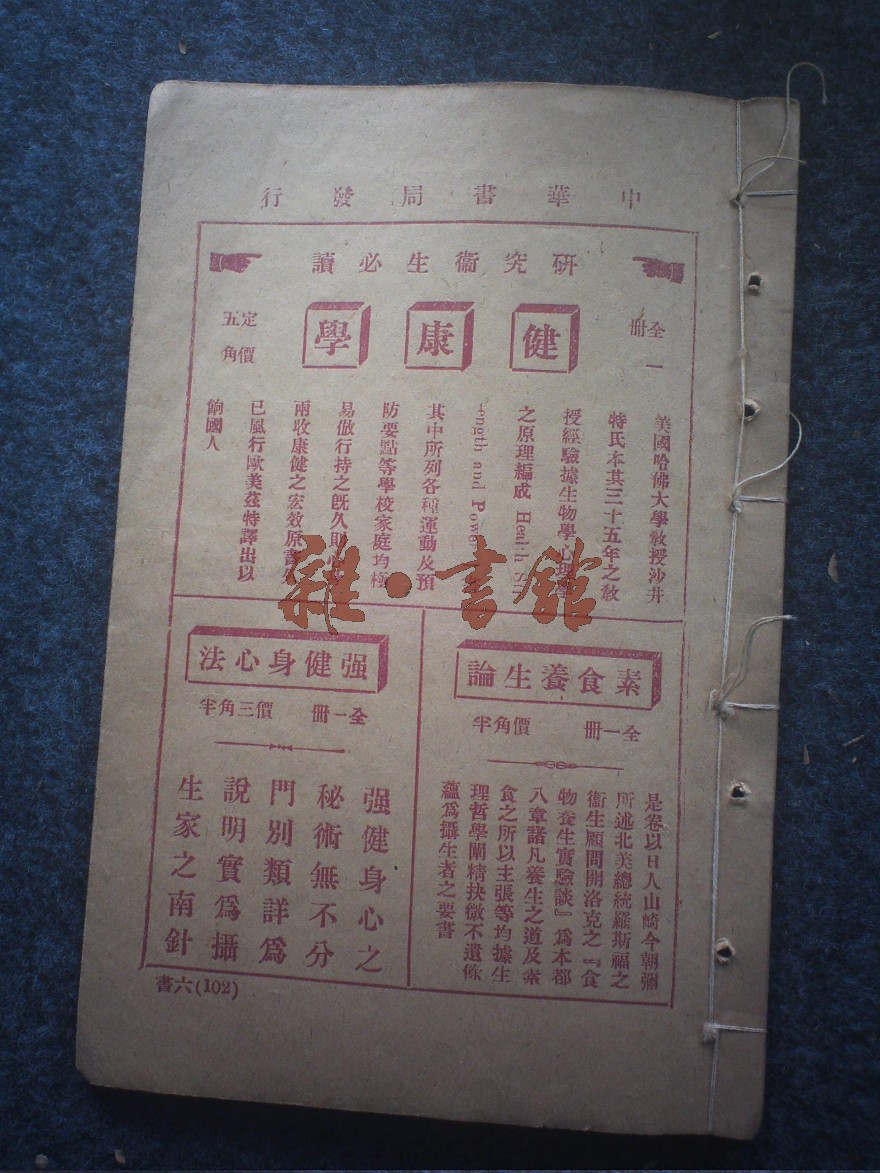 中華書局發行
研究衞生必讀
全一冊
健康學
定價五角
美國哈佛大學教授沙井
特氏本其三十五年之教
授經驗據生物學心理學
之原理編成 Health
and Power
其中所列各種運動及預
防要點等學校家庭均極
易倣行持之旣久則心
兩收康健之宏效原書
已風行歐美茲特譯出以
餉國人
雜·書館
素食養生論
全一冊 價角半
是卷以日人山崎今朝彌
所述北美總統羅斯福之
衞生顧問開洛克之『食
物養生實驗談』爲本都
八章諸凡養生之道及素
食之所以主張等均據生
理哲學闡精抉微不遺餘
蘊爲攝生者之要書
强健身心法
全一冊 價三角半
强健身心之
秘術無不分
門別類詳爲
說明實爲攝
生家之南針
書六(102)